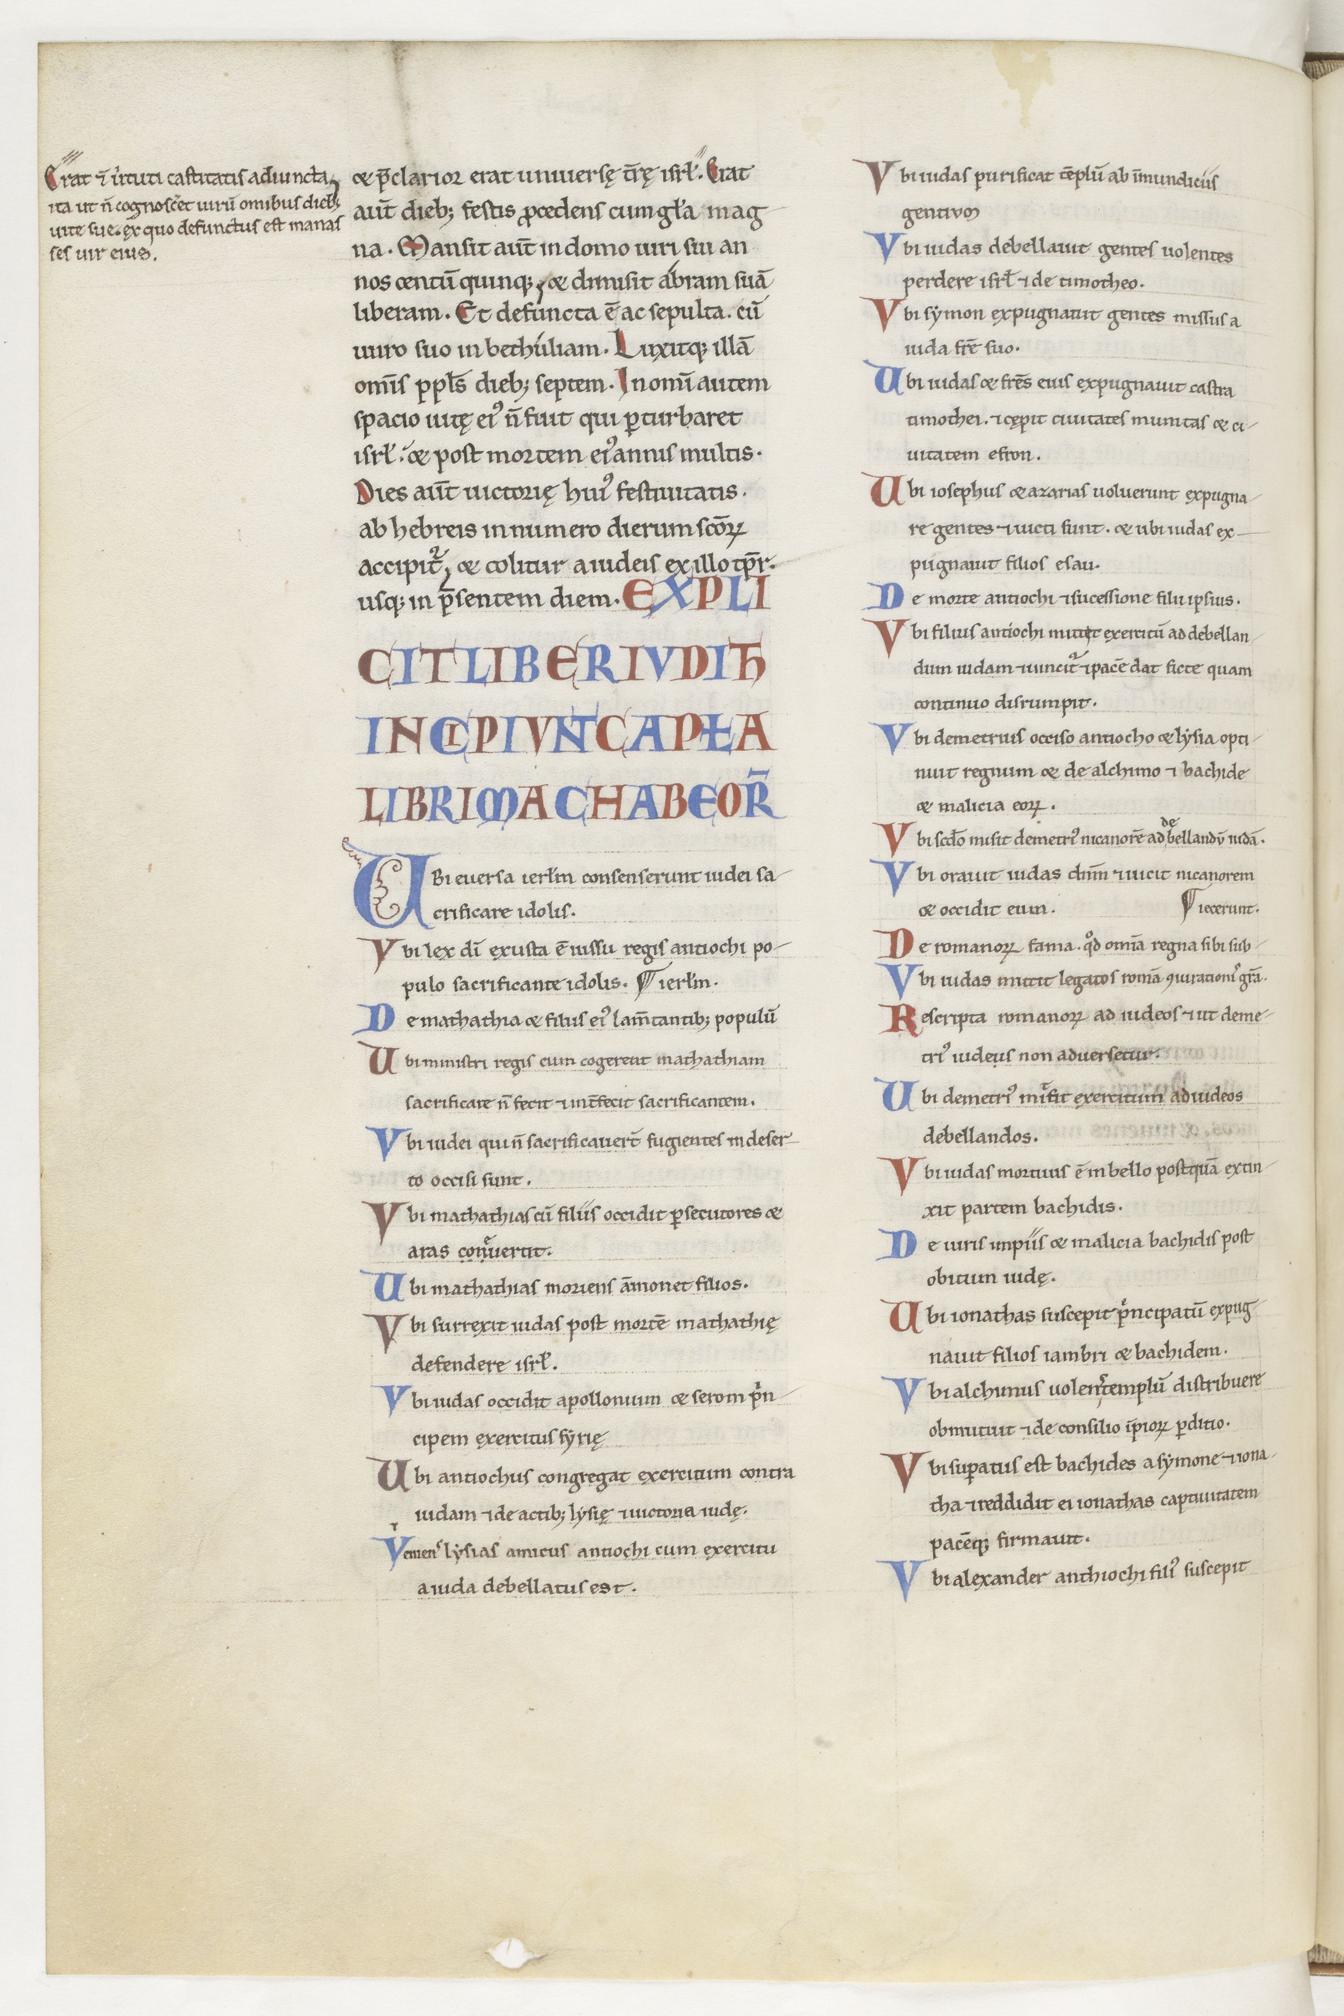 Erat ⁊ uͥrtuti castitatis adiuncta,
ita ut n̄ cognosce᷑t uirū omibus dieb;
uite sue. ex quo defunctus est manas
ses uir eius.
& p̄clarior erat uniuersę t̄rę isrl̄. Erat
aūt dieb; festis ꝓcedens cum gl̄a mag
na. Mansit aūt in domo uiri sui an
nos centū quinq;, & dimisit abram suā
liberam. Et defuncta ē ac sepulta. cū
uiro suo in bethuliam. Luxitq; illā
om̄is ppl̄s dieb; septem. In om̄i autem
spacio uitę eiꝰ n̄ fuit qui ꝑturbaret
isrl̄. & post mortem eiꝰ annis multis.
Dies aūt uictorię huiꝰ festiuitatis.
ab hebreis in numero dierum sc̄oꝝ
accipit᷑, & colitur a iudeis ex illo tp̄r.
usq; in p̄sentem diem. EXPLI
CIT LIBER IVDITH
INCIPIVNT CAPŁA
LIBRI MACHABEOR̄
UBi euersa ierl̄m consenserunt iudei sa-
crificare idolis.
Vbi lex dī exusta ē iussu regis antiochi po-
pulo sacrificante idolis. ¶ ierl̄m.
De mathathia & filiis eiꝰ lam̄tantib; populū
Ubi ministri regis cum cogerent mathathiam
sacrificare n̄ fecit ⁊ int̄fecit sacrificantem.
Vbi iudei qui n̄ sacrificauer̄t fugientes in deser-
to occisi sunt.
Vbi mathathias cū filiis occidit ꝑsecutores &
aras conuertit.
Ubi mathathias moriens āmonet filios.
Vbi surrexit iudas post mortē mathathię
defendere isrl̄.
Vbi iudas occidit apollonium & serom pͥn-
cipem exercitus syrię
Ubi antiochus congregat exercitum contra
iudam ⁊ de actib; lysię ⁊ uictoria iudę.
Vemenˢ lysias amicus antiochi cum exercitu
a iuda debellatus est.
Vbi iudas purificat tēplū ab īmundiciis
gentium
Vbi iudas debellauit gentes uolentes
perdere isrl̄ ⁊ de timotheo.
Vbi symon expugnauit gentes missus a
iuda fr̄e suo.
Ubi iudas & fr̄es eius expugnauit castra
timothei. ⁊ cepit ciuitates munitas & ci-
uitatem efron.
Ubi iosephus & azarias uoluerunt expugna-
re gentes ⁊ uicti sunt. & ubi iudas ex-
pugnauit filios esau.
De morte antiochi ⁊ sucessione filii ipsius.
Vbi filius antiochi mittet exercitū ad debellan-
dum iudam ⁊ uincit᷑ ⁊ pacē dat ficte quam
continuo disrumpit.
Vbi demetrius occiso antiocho & lysia opti-
nuit regnum & de alchimo ⁊ bachide
& malicia eoꝝ.
Vbi sc̄do misit demetriꝰ nicanorē ad debellandū iudā.
Vbi orauit iudas dn̄m ⁊ uicit nicanorem
& occidit eum. ¶ iecerunt.
De romanoꝝ fama. qd̊ om̄ia regna sibi sub-
Vbi iudas mittit legatos romā ꝯiurationiˢ gr̄a.
Rescripta romanoꝝ ad iudeos ⁊ ut deme-
triꝰ iudeis non aduersetur.
Ubi demetriꝰ misit exercitum ad iudeos
debellandos.
Vbi iudas mortuus ē in bello postquā extin-
xit partem bachidis.
De uiris impiis & malicia bachidis post
obitum iudę.
Ubi ionathas suscepit pͥncipatū expug-
nauit filios iambri & bachidem.
Vbi alchimus uolenˢ templū distribuere
obmutuit ⁊ de consilio īpioꝝ ꝑditio.
Vbi suꝑatus est bachides a symone ⁊ iona-
tha ⁊ reddidit ei ionathas captiuitatem
pacēq; firmauit.
Vbi alexander anthiochi filiꝰ suscepit